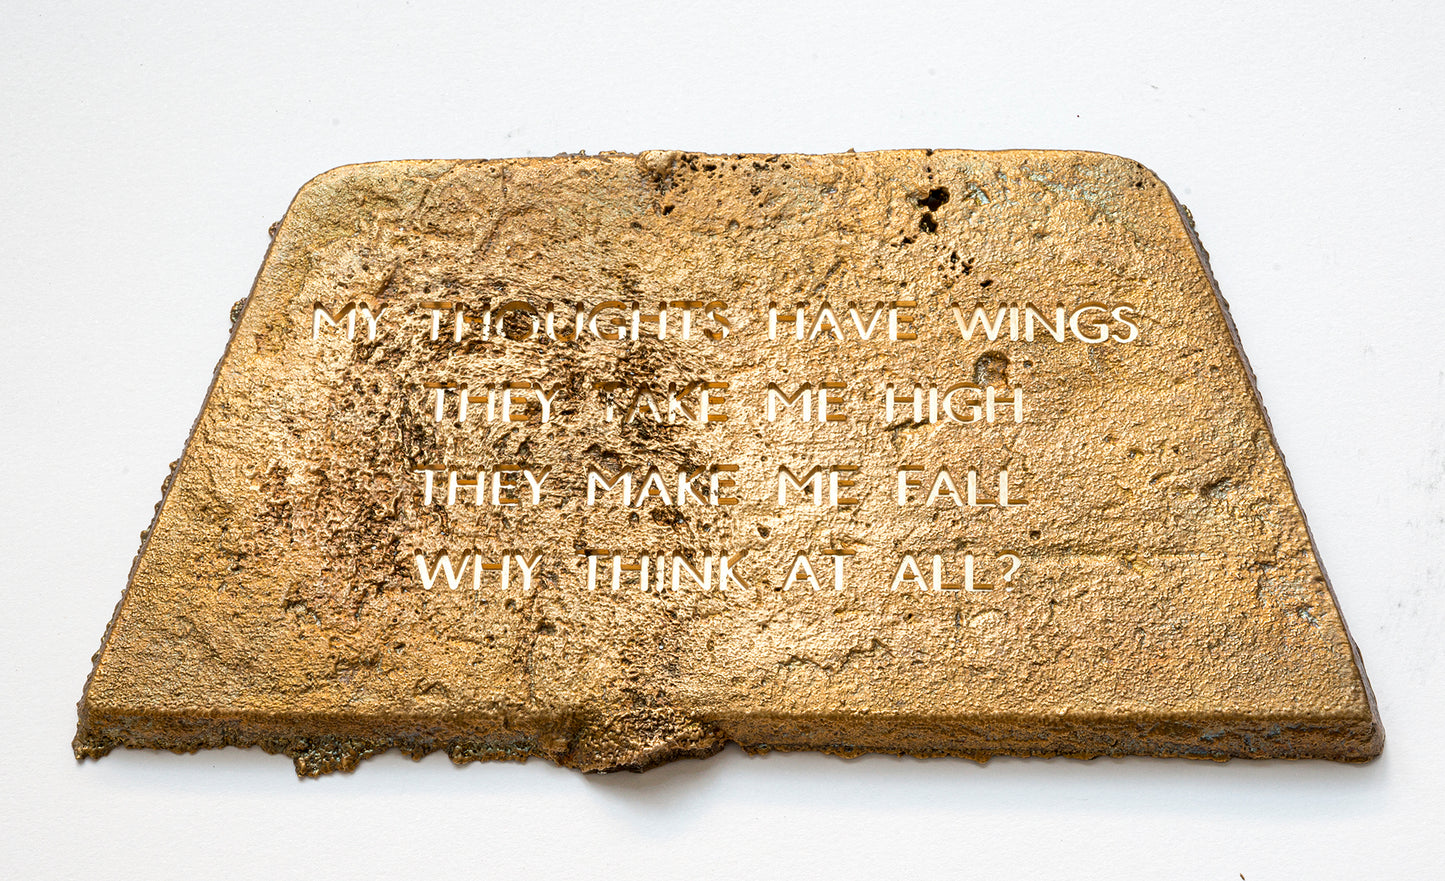 MY THOUGHTS HAVE WINGS
THEY TAKE ME HIGH
THEY MAKE ME FALL
WHY THINK AT ALL?